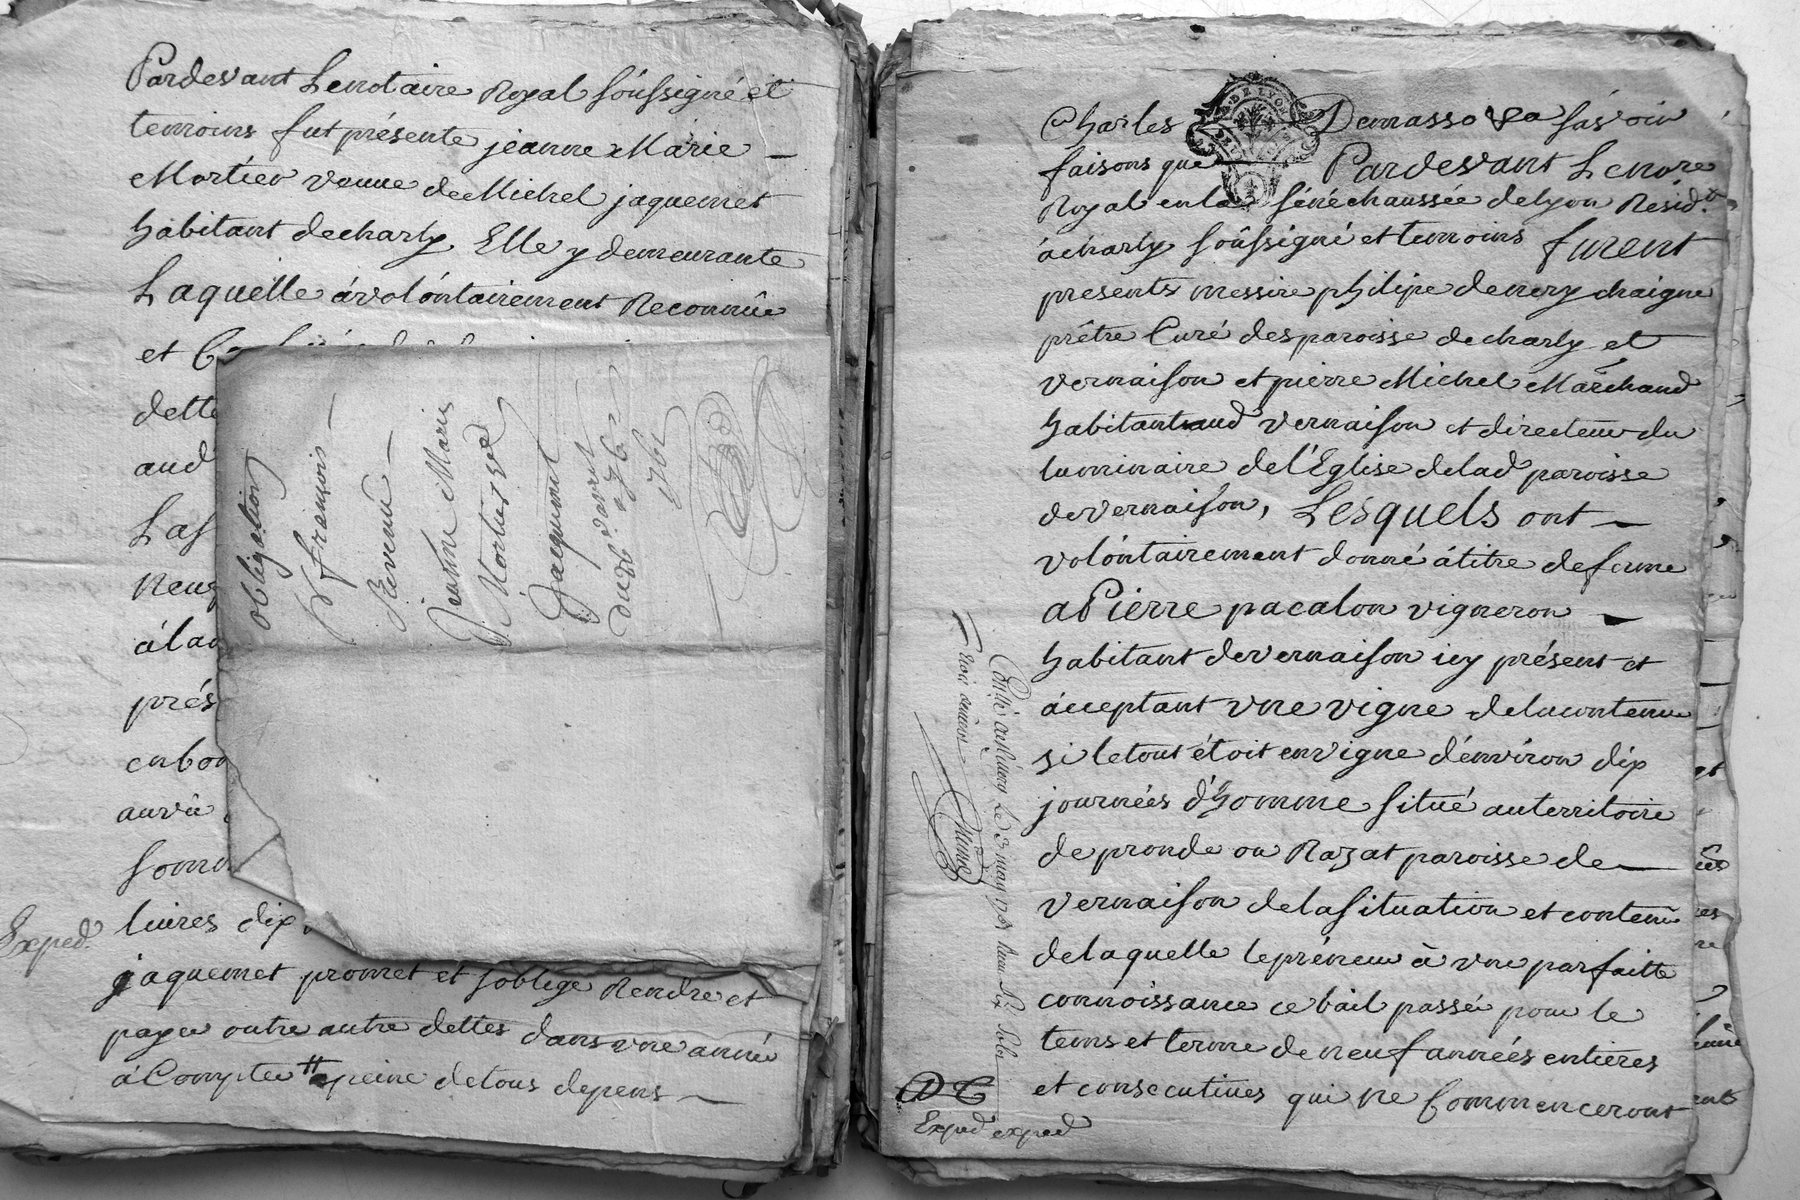 Pardevant Lenotaire Royal soussigné et
temoins fut présente jeanne Marie
Mortier veuve de Michel jaquemet
habitant decharly Elle y demeurante
Laquelle a volóntairement Reconnûe
et
dette
aud
Las
Neuf
á la
prés
en bon
livres dix
jaquemet promet et soblige Rendre et
payer outre autre dettes dans une année
á Compter a peine detous depens
Exped.
obligation
françois
Revenu
Jeanne Marie
Mortier ve
Jaquemet
1762
DE LYON
Charles Demasso sa savoir
faisons que Pardevant Lenore
Royal en la sénéchaussée delyon Resid.
ácharly soûssigné et temoins furent
presents messire philipe denery chaigne
prêtre Curé des paroisse decharly et
vernaison et pierre Michel Marchand
habitant aud vernaison et directeur du
luminaire de l'Eglise delad paroisse
devernaison, Lesquels ont
volóntairement donné átitre deferme
a Pierre pacalon vigneron
habitant devernaison icy présent et
ácceptant une vigne delacontenue
si letout étoit envigne d'énviron dix
journées d'homme situé auterritoire
de pronde ou Razat paroisse de
vernaison delasituation et contenû
delaquelle lepréneur à une parfaitte
connoissance ce bail passé pour le
tems et terme deneuf années entieres
et consecutives qui ne Commenceront
Exped exped